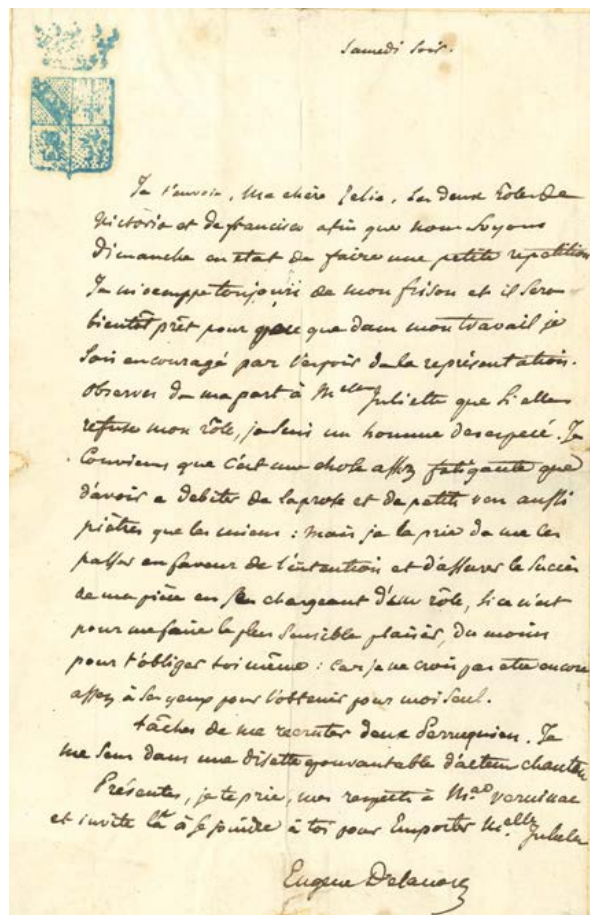 Samedi soir.
Je t'envoie, ma chère Félix, les deux rôles de
Victoria et de francisco afin que nous soyons
dimanche en état de faire une petite repetition
Je m'occuppe toujours de mon frison et il sera
bientôt prêt pour que dans mon travail je
sois encouragé par l'espoir de la représentation.
Observes de ma part à Melle Juliette que si elle
refuse mon rôle, je suis un homme desesperé. Je
Conviens que c'est une chose assez fatigante que
d'avoir a debiter de la prose et de petits vers aussi
piètres que les miens : mais je la prie de me les
passer en faveur de l'intention et d'assurer le succès
de ma pièce en se chargeant d'un rôle, si ce n'est
pour me faire le plus sensible plaisir, du moins
pour t'obliger toi même : car je ne crois pas etre encore
assez à ses yeux pour l'obtenir pour moi seul.
tâches de me recruter deux Perruquiers. Je
me sens dans une disette epouvantable d'acteurs chantans
Présentes, je te prie, mes respects à Mad verninac
et invite là à se joindre à toi pour Emporter Melle Juliette
Eugène Delacroix